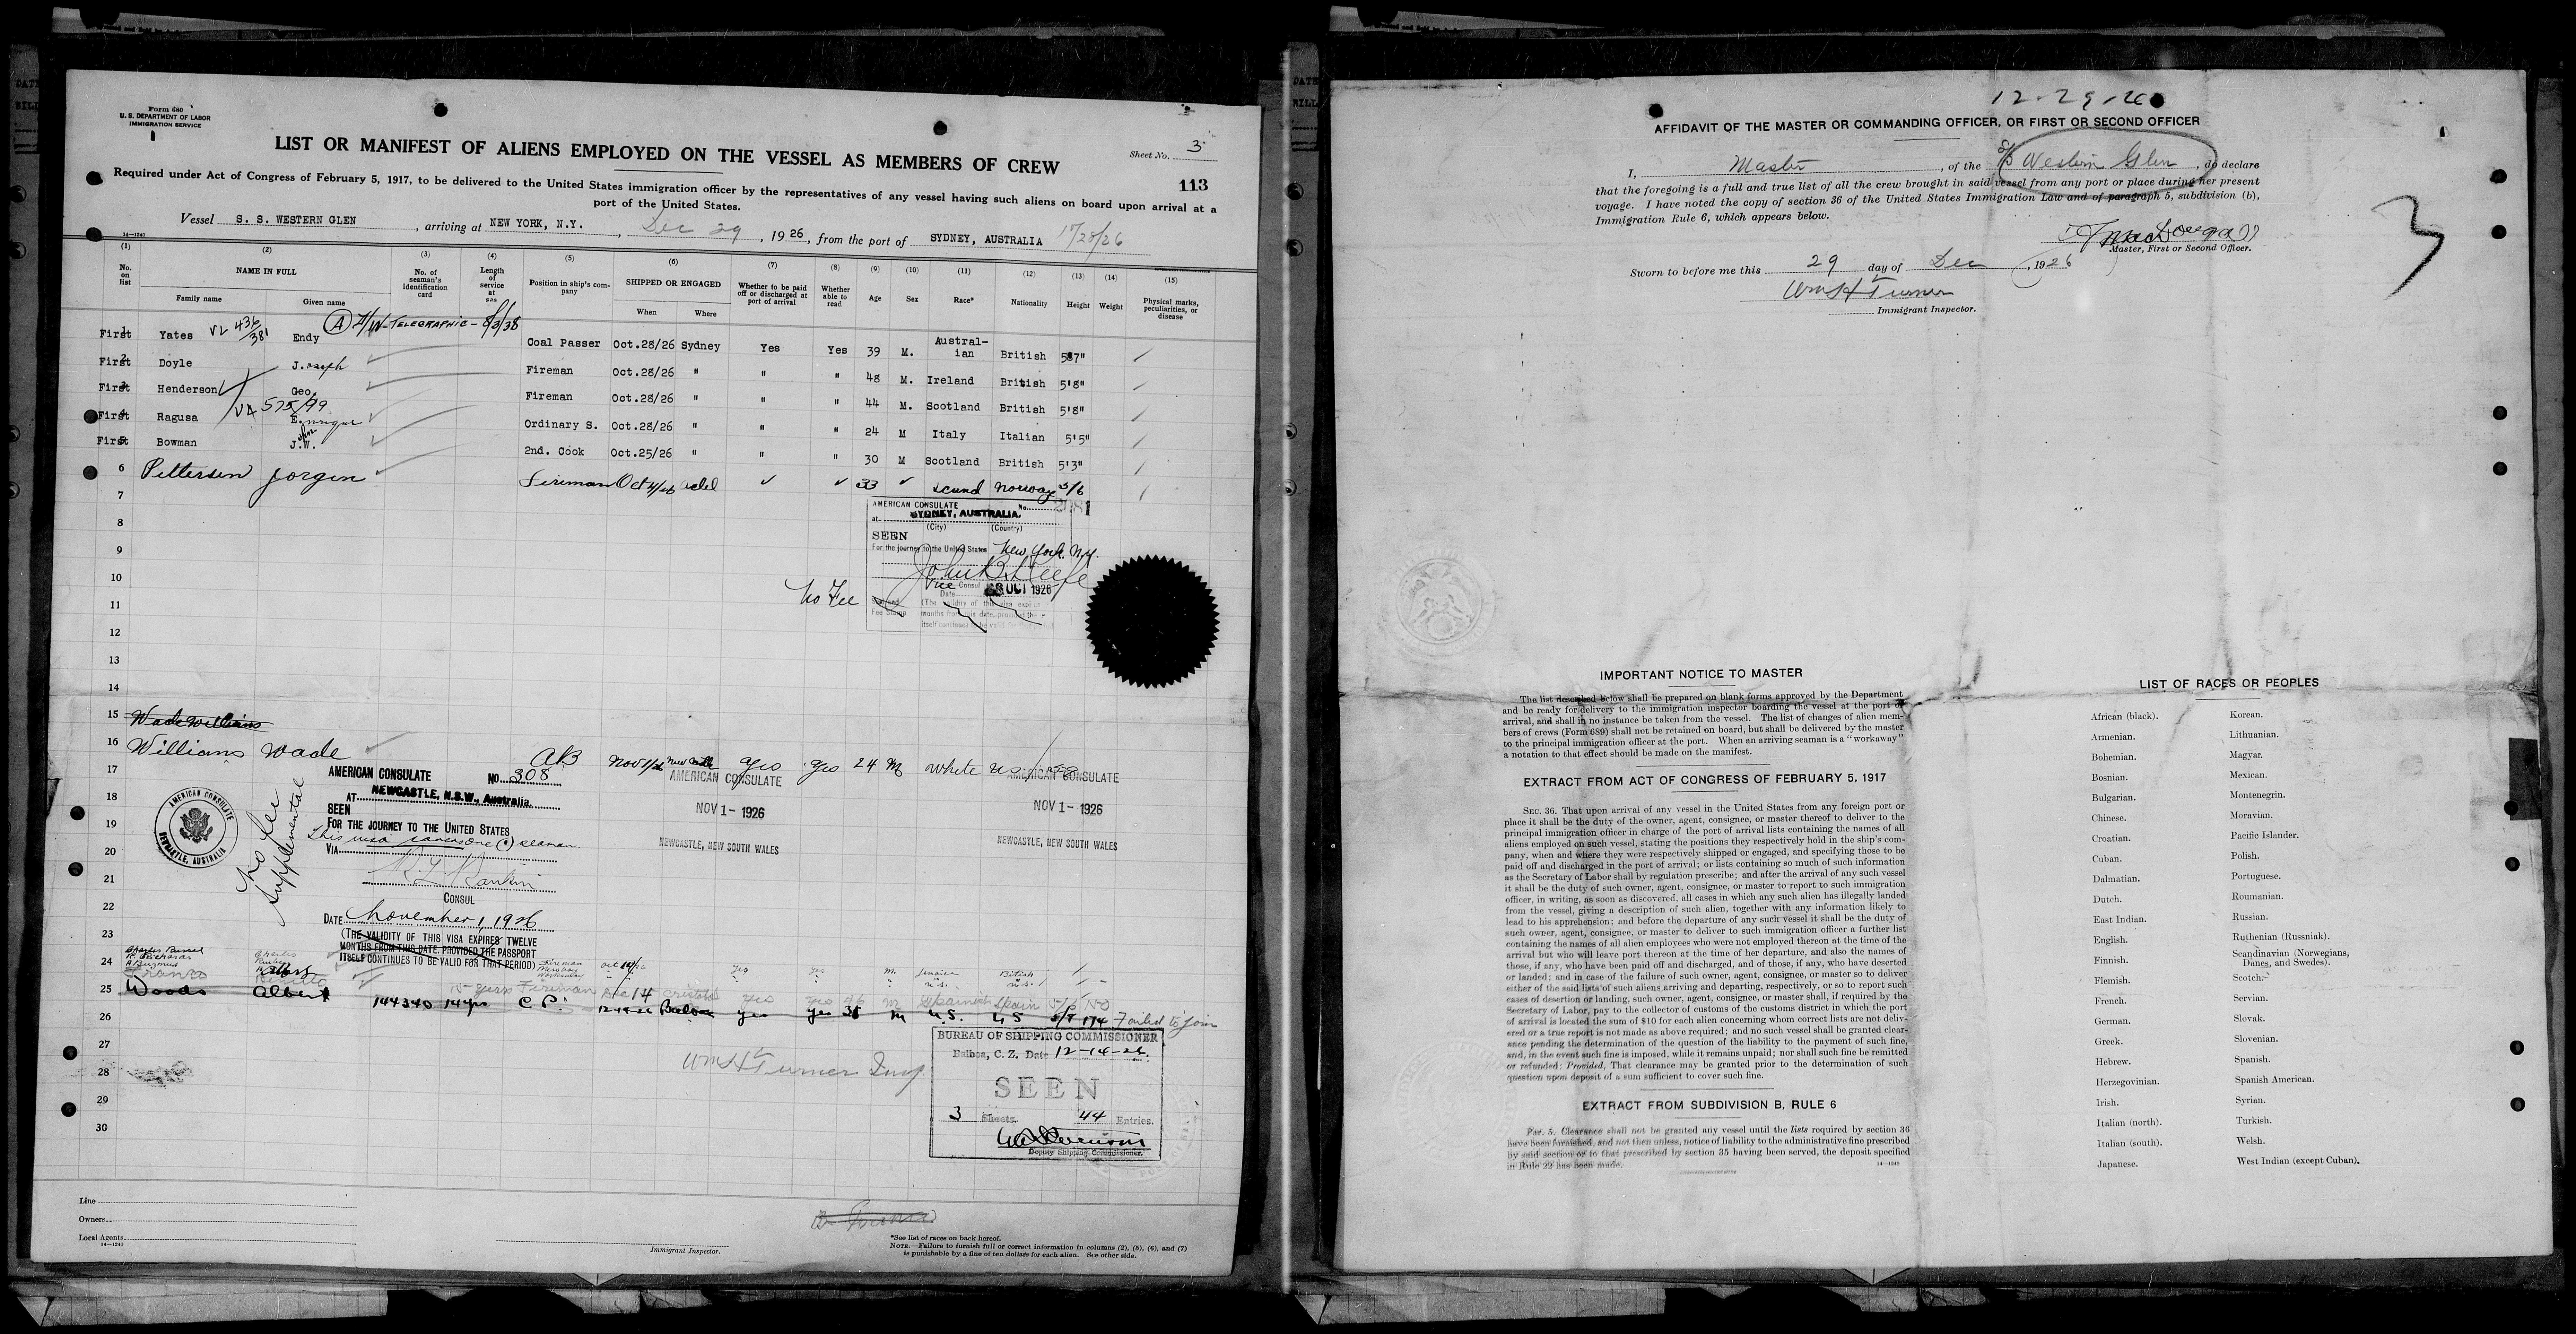 Form 680
U. S. DEPARTMENT OF LABOR
IMMIGRATION SERVICE
LIST OR MANIFEST OF ALIENS EMPLOYED ON THE VESSEL AS MEMBERS OF CREW
Sheet No. 3
113
Required under Act of Congress of February 5, 1917, to be delivered to the United States immigration officer by the representatives of any vessel having such aliens on board upon arrival at a
port of the United States.
Vessel S. S. WESTERN GLEN, arriving at NEW YORK, N.Y., Dec 29, 1926, from the port of SYDNEY, AUSTRALIA
14—1240
(1) (2) (3) (4) (5) (6) (7) (8) (9) (10) (11) (12) (13) (14) (15)
No. on list NAME IN FULL No. of seaman's identification card Length of service at sea Position in ship's company SHIPPED OR ENGAGED Whether to be paid off or discharged at port of arrival Whether able to read Age Sex Race* Nationality Height Weight Physical marks, peculiarities, or disease
Family name Given name When Where
VL 436/381 (A) TELEGRAPHIC - 8/3/38
1 First Yates Endy Coal Passer Oct.28/26 Sydney Yes Yes 39 M. Austral-ian British 5'7"
2 First Doyle Joseph Fireman Oct.28/26 " " " 48 M. Ireland British 5'8"
3 First Henderson Geo. Fireman Oct.28/26 " " " 44 M. Scotland British 5'8"
575/99
4 First Ragusa E. Ordinary S. Oct.28/26 " " " 24 M Italy Italian 5'5"
5 First Bowman J.W. John 2nd. Cook Oct.25/26 " " " 30 M Scotland British 5'3"
6 Pettersen Jorgen Fireman Oct 4/26 33 Scand Norway 5/6
7
8
9
10
11
12
13
14
AMERICAN CONSULATE No. 2081
at SYDNEY, AUSTRALIA.
(City) (Country)
SEEN
For the journey to the United States New York N.Y.
Vice Consul
Date 28 OCT 1926
No Fee
15 Wade Williams
16 Williams Wade AB Nov 1/26 New Castle yes yes 24 M White US
17
18
19
20
21
22
23
AMERICAN CONSULATE NO. 308
AT NEWCASTLE, N.S.W., Australia.
SEEN
FOR THE JOURNEY TO THE UNITED STATES
This visa covers one (1) seaman.
VIA
CONSUL
DATE November 1, 1926
(THE VALIDITY OF THIS VISA EXPIRES TWELVE
MONTHS FROM THIS DATE, PROVIDED THE PASSPORT
ITSELF CONTINUES TO BE VALID FOR THAT PERIOD)
AMERICAN CONSULATE
NEWCASTLE, AUSTRALIA
No fee
Supplemental
AMERICAN CONSULATE
NOV 1- 1926
NEWCASTLE, NEW SOUTH WALES
AMERICAN CONSULATE
NOV 1- 1926
NEWCASTLE, NEW SOUTH WALES
24 Franco Fireman Dec 14 yes yes M Spanish Spain 5/6
25 Woods Albert 144340 14 yrs C P. Balboa yes yes M U.S. US 174 Failed to join
26
27
28
29
30
Wm H Turner Insp
BUREAU OF SHIPPING COMMISSIONER
Balboa, C. Z. Date 12-14-26.
SEEN
3 Sheets. 44 Entries.
Deputy Shipping Commissioner.
Line
Owners
Local Agents
14—1240
Immigrant Inspector.
*See list of races on back hereof.
NOTE.—Failure to furnish full or correct information in columns (2), (5), (6), and (7)
is punishable by a fine of ten dollars for each alien. See other side.
12-29-26
AFFIDAVIT OF THE MASTER OR COMMANDING OFFICER, OR FIRST OR SECOND OFFICER
I, Master, of the S/S Western Glen, do declare
that the foregoing is a full and true list of all the crew brought in said vessel from any port or place during her present
voyage. I have noted the copy of section 36 of the United States Immigration Law and of paragraph 5, subdivision (b),
Immigration Rule 6, which appears below.
Master, First or Second Officer.
3
Sworn to before me this 29 day of Dec, 1926
Wm H Turner
Immigrant Inspector.
IMPORTANT NOTICE TO MASTER
The list described below shall be prepared on blank forms approved by the Department
and be ready for delivery to the immigration inspector boarding the vessel at the port of
arrival, and shall in no instance be taken from the vessel. The list of changes of alien mem-
bers of crews (Form 689) shall not be retained on board, but shall be delivered by the master
to the principal immigration officer at the port. When an arriving seaman is a "workaway"
a notation to that effect should be made on the manifest.
EXTRACT FROM ACT OF CONGRESS OF FEBRUARY 5, 1917
SEC. 36. That upon arrival of any vessel in the United States from any foreign port or
place it shall be the duty of the owner, agent, consignee, or master thereof to deliver to the
principal immigration officer in charge of the port of arrival lists containing the names of all
aliens employed on such vessel, stating the positions they respectively hold in the ship's com-
pany, when and where they were respectively shipped or engaged, and specifying those to be
paid off and discharged in the port of arrival; or lists containing so much of such information
as the Secretary of Labor shall by regulation prescribe; and after the arrival of any such vessel
it shall be the duty of such owner, agent, consignee, or master to report to such immigration
officer, in writing, as soon as discovered, all cases in which any such alien has illegally landed
from the vessel, giving a description of such alien, together with any information likely to
lead to his apprehension; and before the departure of any such vessel it shall be the duty of
such owner, agent, consignee, or master to deliver to such immigration officer a further list
containing the names of all alien employees who were not employed thereon at the time of the
arrival but who will leave port thereon at the time of her departure, and also the names of
those, if any, who have been paid off and discharged, and of those, if any, who have deserted
or landed; and in case of the failure of such owner, agent, consignee, or master so to deliver
either of the said lists of such aliens arriving and departing, respectively, or so to report such
cases of desertion or landing, such owner, agent, consignee, or master shall, if required by the
Secretary of Labor, pay to the collector of customs of the customs district in which the port
of arrival is located the sum of $10 for each alien concerning whom correct lists are not deliv-
ered or a true report is not made as above required; and no such vessel shall be granted clear-
ance pending the determination of the question of the liability to the payment of such fine,
and, in the event such fine is imposed, while it remains unpaid; nor shall such fine be remitted
or refunded: Provided, That clearance may be granted prior to the determination of such
question upon deposit of a sum sufficient to cover such fine.
EXTRACT FROM SUBDIVISION B, RULE 6
Par. 5. Clearance shall not be granted any vessel until the lists required by section 36
have been furnished, and not then unless, notice of liability to the administrative fine prescribed
by said section or to that prescribed by section 35 having been served, the deposit specified
in Rule 22 has been made.
14—1240
LIST OF RACES OR PEOPLES
African (black). Korean.
Armenian. Lithuanian.
Bohemian. Magyar.
Bosnian. Mexican.
Bulgarian. Montenegrin.
Chinese. Moravian.
Croatian. Pacific Islander.
Cuban. Polish.
Dalmatian. Portuguese.
Dutch. Roumanian.
East Indian. Russian.
English. Ruthenian (Russniak).
Finnish. Scandinavian (Norwegians, Danes, and Swedes).
Flemish. Scotch.
French. Servian.
German. Slovak.
Greek. Slovenian.
Hebrew. Spanish.
Herzegovinian. Spanish American.
Irish. Syrian.
Italian (north). Turkish.
Italian (south). Welsh.
Japanese. West Indian (except Cuban).